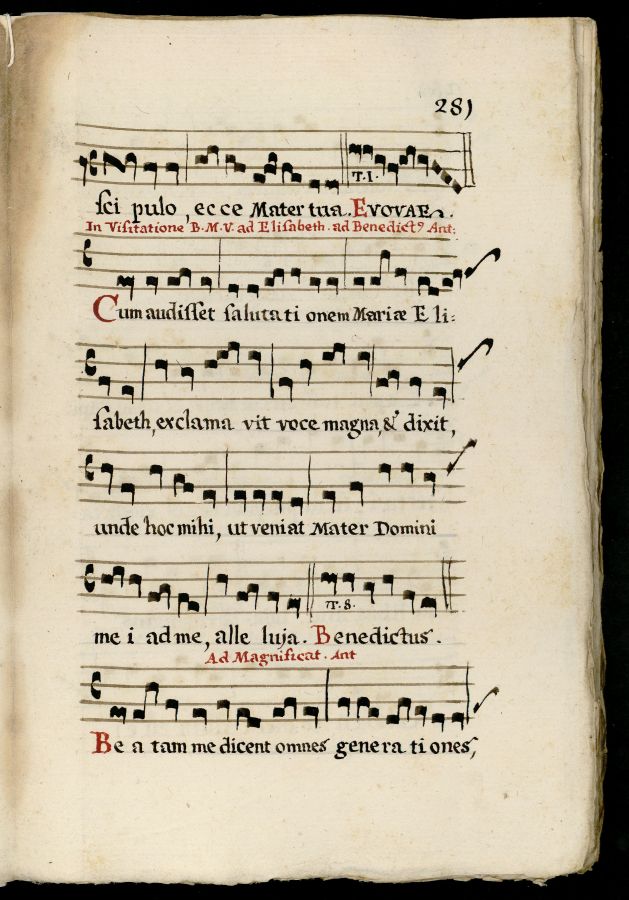 281
T.1.
sci pulo, ecce Mater tua. EVOVAE.
In Visitatione B.M.V. ad Elisabeth. ad Benedictꝰ Ant:
Cum audisset salutati onem Mariæ Eli=
sabeth, exclama vit voce magna, & dixit,
unde hoc mihi, ut veniat Mater Domini
T.8.
me i ad me, alle luja. Benedictus.
Ad Magnificat. Ant
Be a tam me dicent omnes genera tiones,